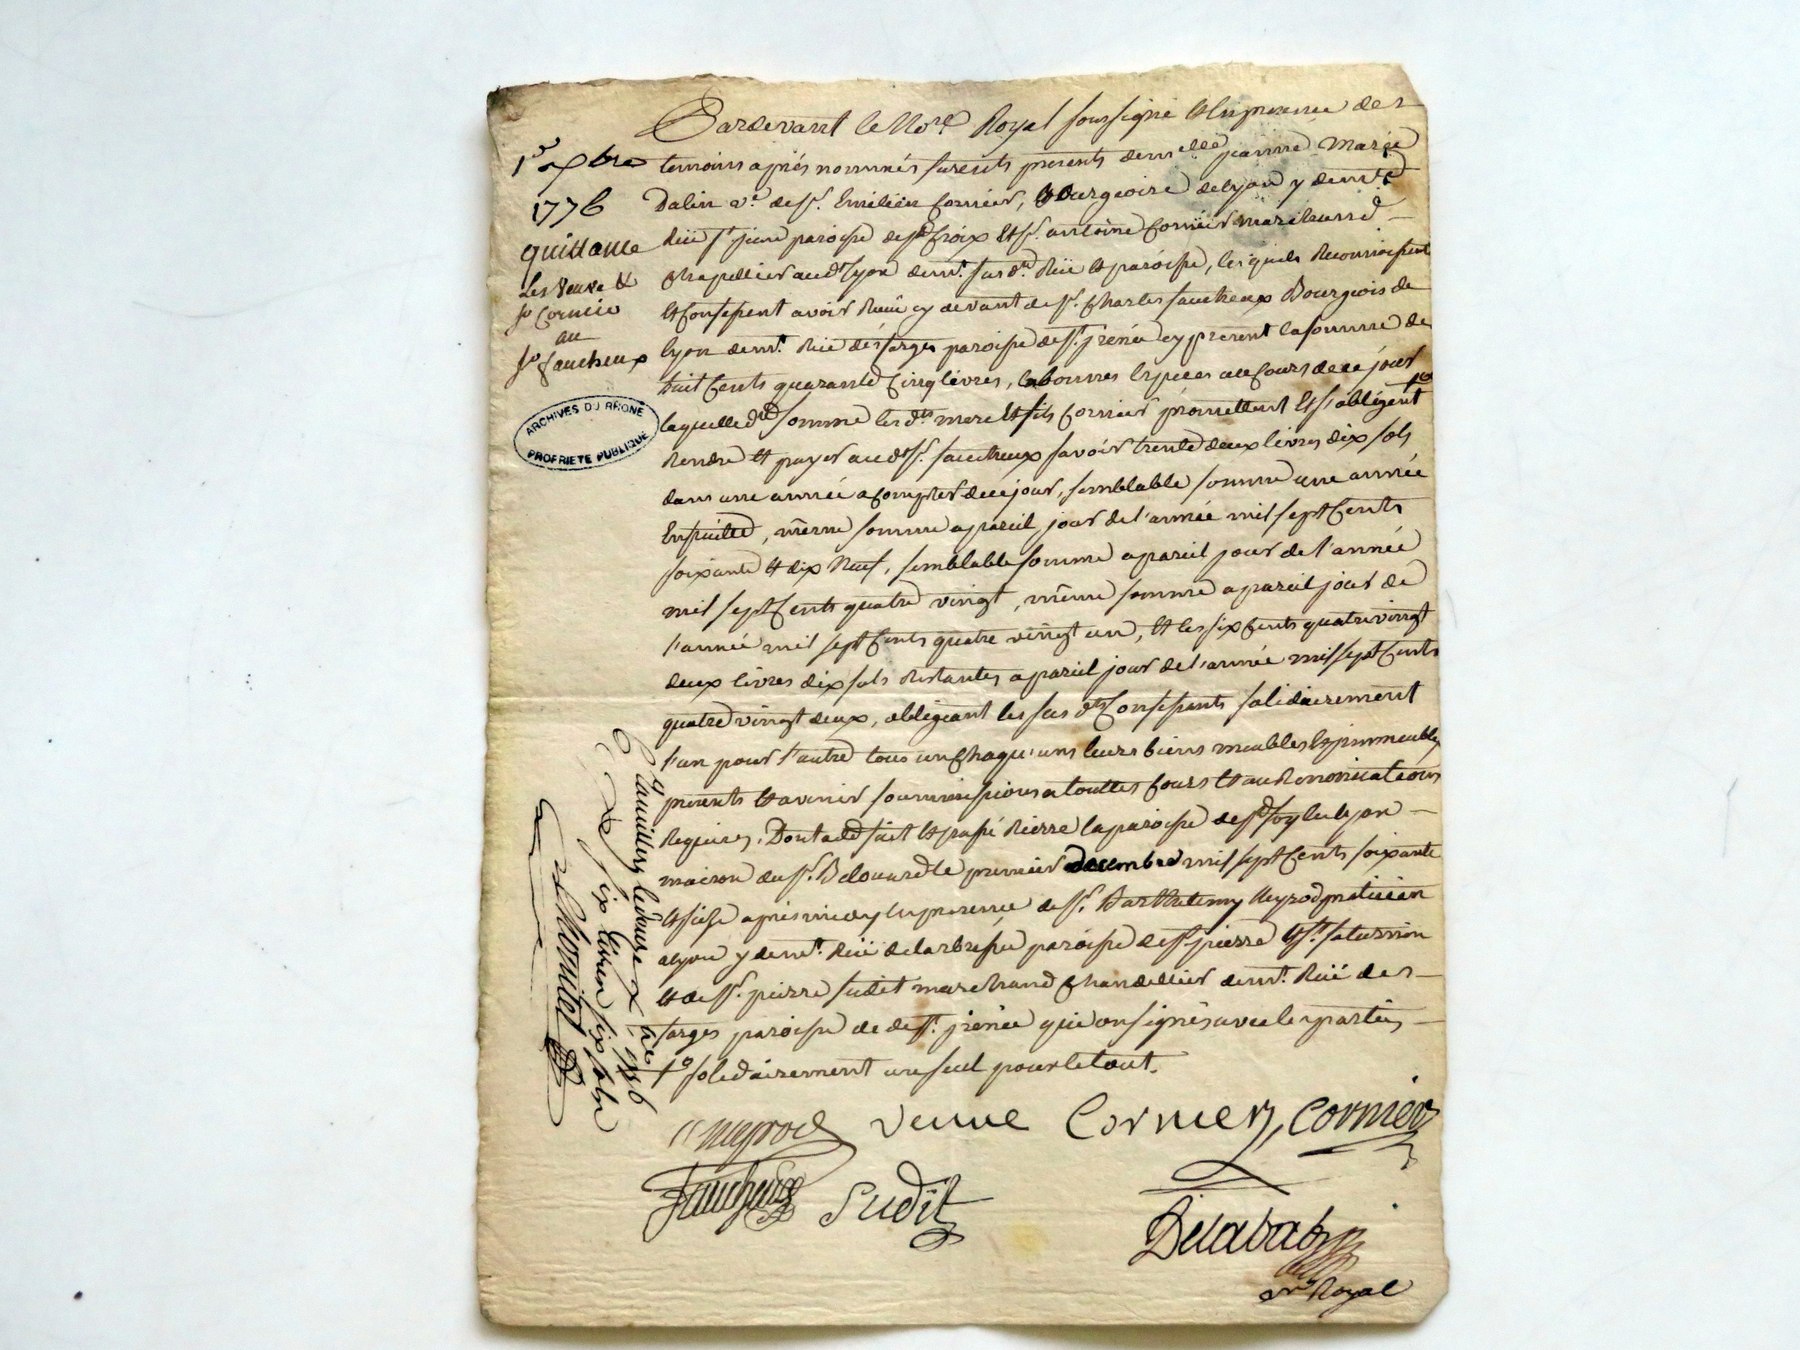 1er xbre
1776
quittance
Les Veuve &
Sr Cornier
au
Sr Faucheux
ARCHIVES DU RHONE
PROPRIETE PUBLIQUE
Pardevant le Nore Royal soussigné et en presence des
temoins après nommés furent presents demelle jeanne Marie
Dalin ve. de Sr. Emilien Cornier, Bourgeoise de lyon y demte
Rüe St jean paroisse de Ste Croix et Sr. antoine Cornier marchand
Chapellier audt lyon demt. susde. Rüe et paroisse, lesquels Reconnoissent
et Confessent avoir Reçu cy devant de Sr. Charles faucheux Bourgeois de
lyon demt. Rüe des farges paroisse de St. jrenée cy present la somme de
huit Cents quarante Cinq livres, en bonnes Especes au Cours de ce jour
laquelle de somme les dts mere et fils Cornier promettent et s'obligent
Rendre et payer audt Sr. faucheux savoir trente deux livres dix sols
dans une année a Compter de ce jour, semblable somme une année
Ensuitte, même somme a pareil jour de l'année mil sept Cents
soixante et dix Neuf, semblable somme a pareil jour de l'année
mil sept Cents quatre vingt, même somme a pareil jour de
l'année mil sept Cents quatre vingt un, et les six Cents quatre vingt
deux livres dix sols Restantes a pareil jour de l'année mil sept Cents
quatre vingt deux, obligeant les sus dts Confessants solidairement
l'un pour l'autre tous un Chaqu'uns leurs biens meubles et jmmeubles
presents et avenir soummissions a touttes Cours et aux Renonciations
Requises. Dont acte fait et passé Rierre la paroisse de Ste foy les lyon
maison du Sr. Belouard le premier decembre mil sept Cents soixante
et seise après midy en presence de Sr. Barthelemy Neyrod praticien
a lyon y demt. Rüe de larbresse paroisse de St. pierre et St. saturnin
et de Sr. pierre Sudit marchand Chandellier demt. Rüe des
farges paroisse de St. jrenée qui ont signés avec les parties
solidairement un seul pour le tout.
Neyrod veuve Cornier, Cornier
Faucheux Sudit
Delabat
nre Royal
le douze Xbre 1776
six livres six sols